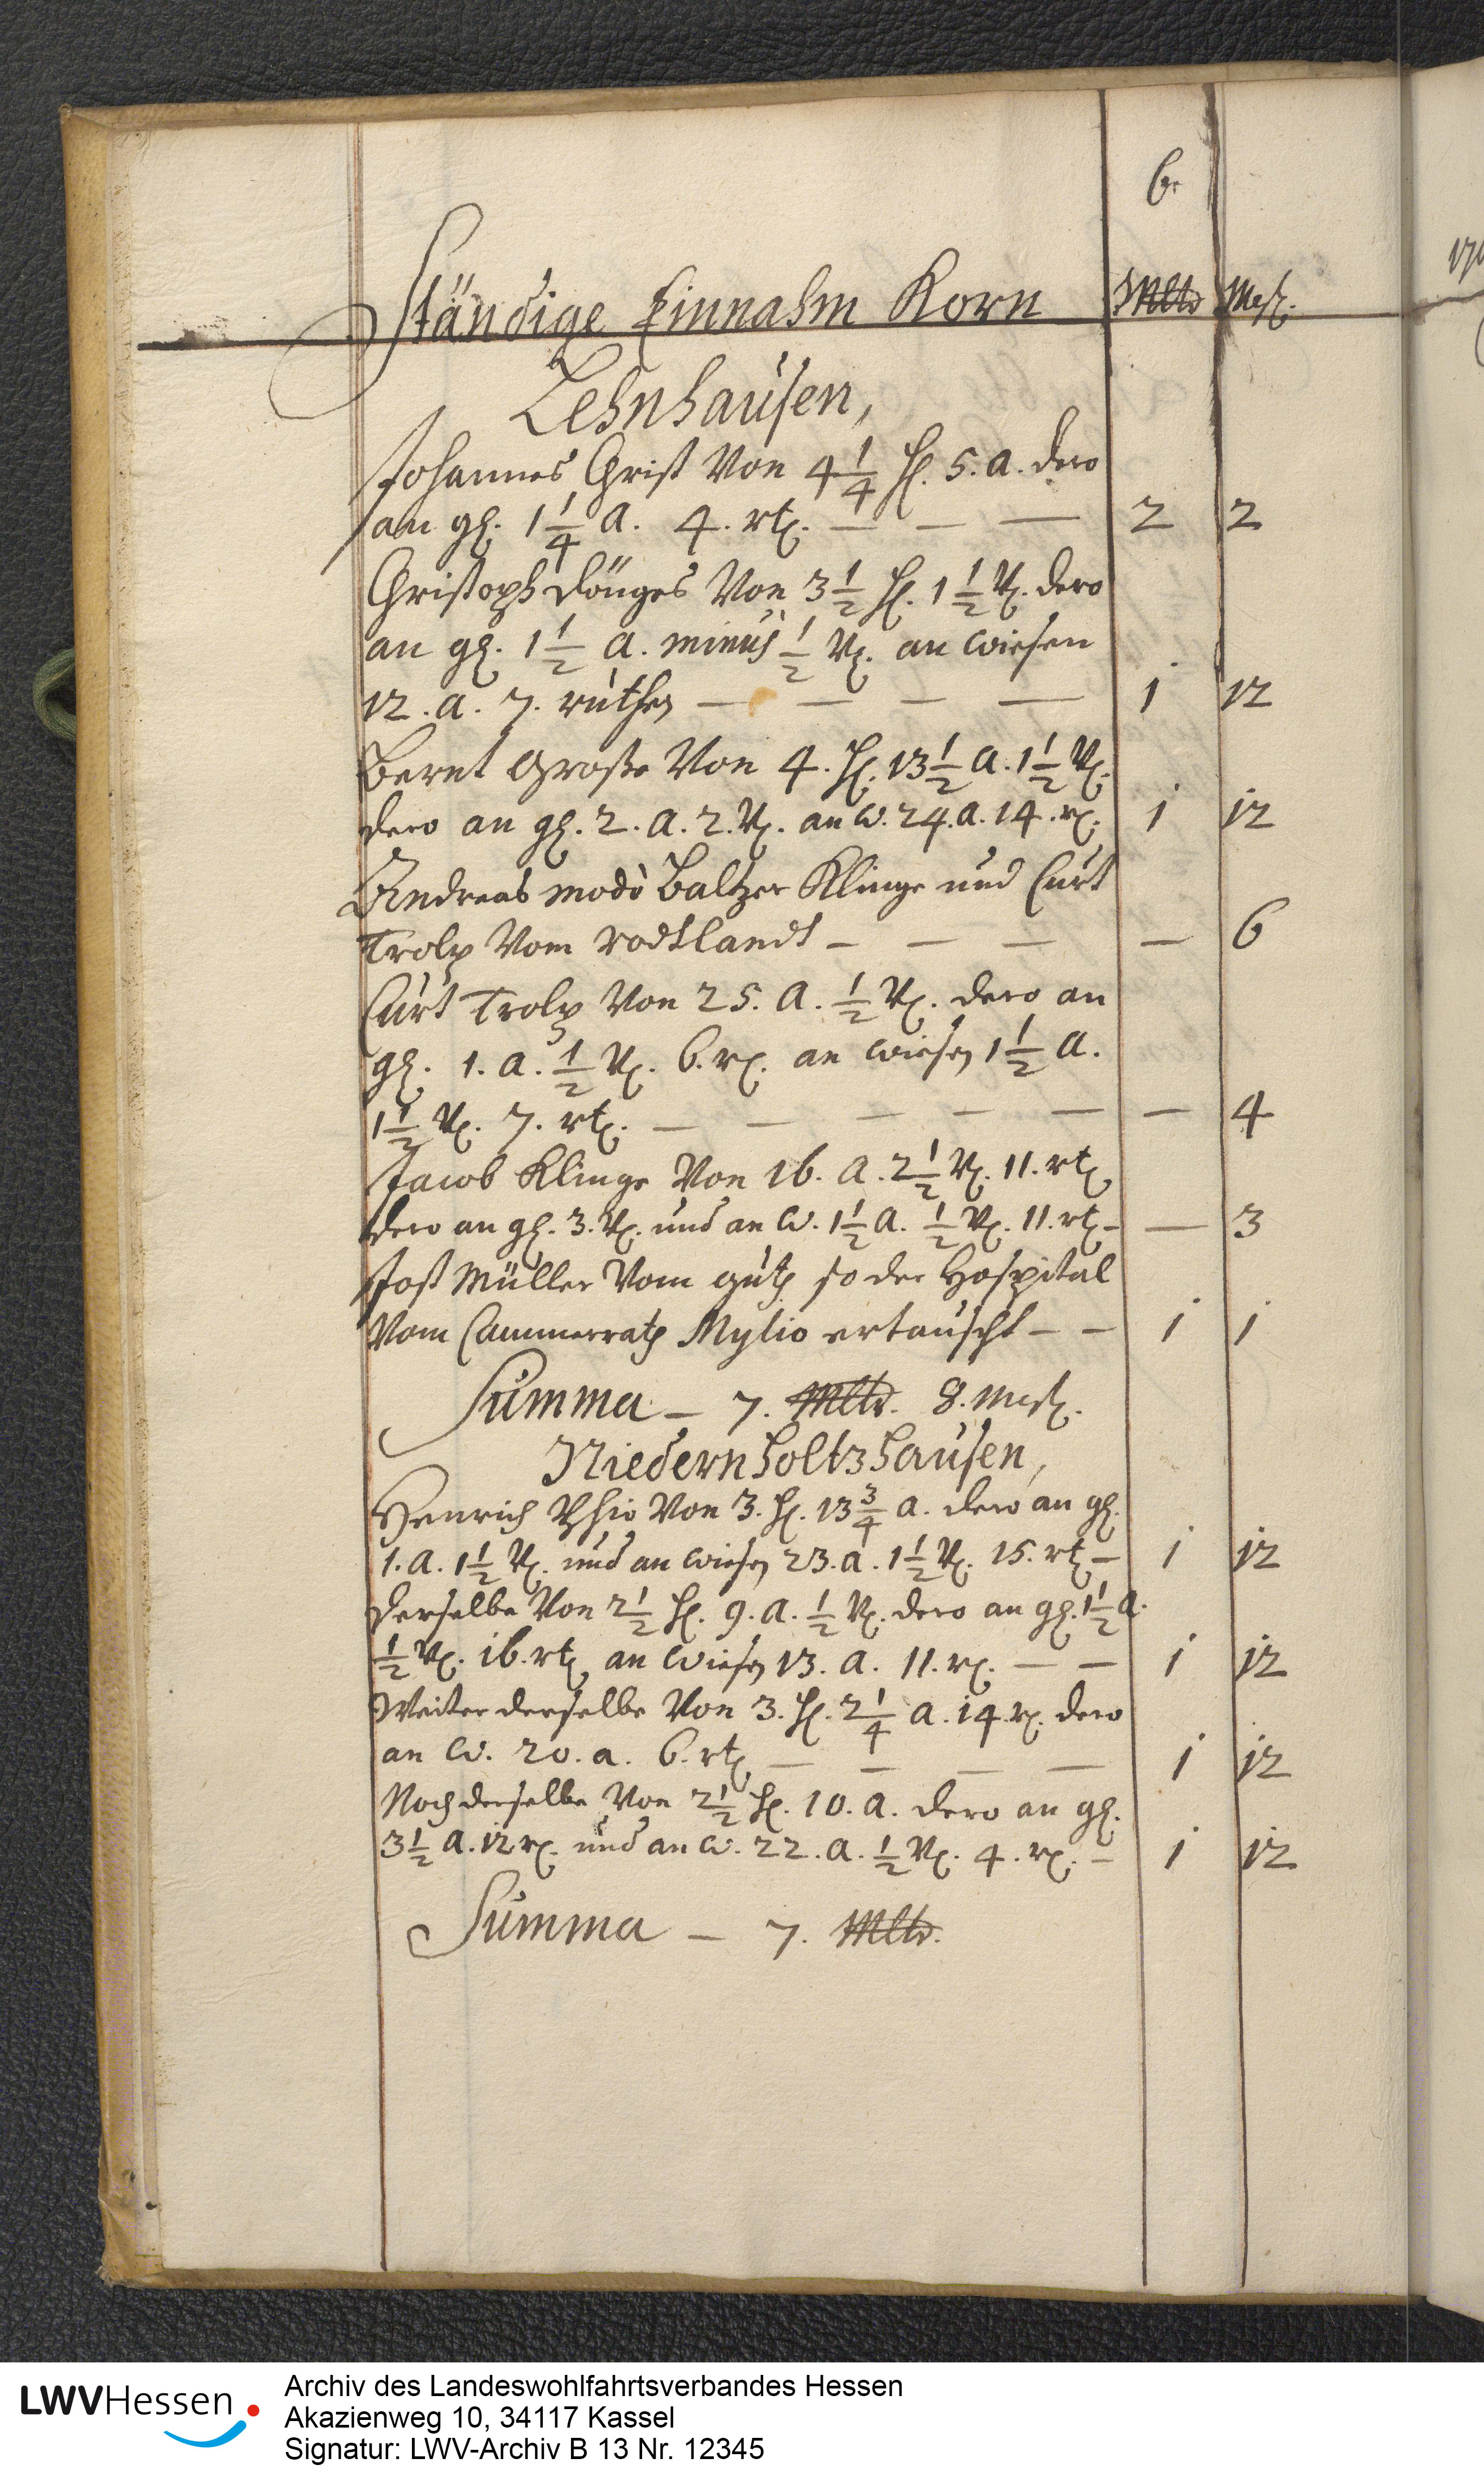 6.
Ständige Einnahm Korn Mltr Mesz.
Lehnhausen,
Johannes Christ Von 4 1/4 H. 5. a. dero
an gh. 1 1/4 a. 4. rt. — — — 2 2
Christoph Dönges Von 3 1/2 H. 1 1/2 V. dero
an gh. 1 1/2 a. minus 1/2 V. an wiesen
12. a. 7. ruthen — — — — 1 12
Bernt Große Von 4. H. 13 1/2 a. 1 1/2 V.
dero an gh. 2. a. 2. V. an w. 24. a. 14. r. 1 12
Andreas modò Baltzer Klinge und Curt
Trolp Vom rodtlandt — — — — 6
Curt Trolp Von 25. a. 1/2 V. dero an
gh. 1. a. 1/2 V. 6. r. an wiesen 1 1/2 a.
1 1/2 V. 7. rt. — — — — — — 4
Jacob Klinge Von 16. a. 2 1/2 V. 11. rt.
dero an gh. 3. V. und an w. 1 1/2 a. 1/2 V. 11. rt. — — 3
Jost Müller Vom guth so der Hospital
Vom Cammerrath Mylio ertauscht — — 1 1
Summa — 7. Mltr. 8. Mesz.
Niedernholtzhausen,
Henrich Von 3. H. 13 3/4 a. dero an gh.
1. a. 1 1/2 V. und an wiesen 23. a. 1 1/2 V. 15. rt. — 1 12
Derselbe Von 2 1/2 H. 9. a. 1/2 V. dero an gh. 1 1/2 a.
1/2 V. 16. rt. an wiesen 13. a. 11. r. — — 1 12
Weiter derselbe Von 3. H. 2 1/4 a. 14. r. dero
an w. 20. a. 6. rt. — — — — 1 12
Noch derselbe Von 2 1/2 H. 10. a. dero an gh.
3 1/2 a. 12 r. und an w. 22. a. 1/2 V. 4. r. — 1 12
Summa — 7. Mltr.
LWVHessen
Archiv des Landeswohlfahrtsverbandes Hessen
Akazienweg 10, 34117 Kassel
Signatur: LWV-Archiv B 13 Nr. 12345